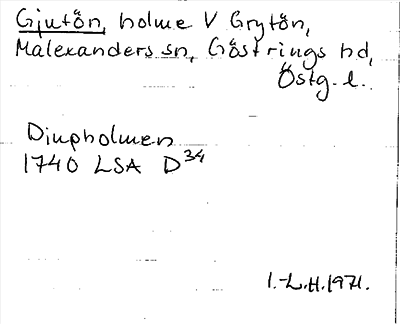 Gjutön, holme V Grytön,
Malexanders sn, Göstrings hd,
Östg. l.
Diupholmen
1740 LSA D³⁴
I.-L.H. 1971.